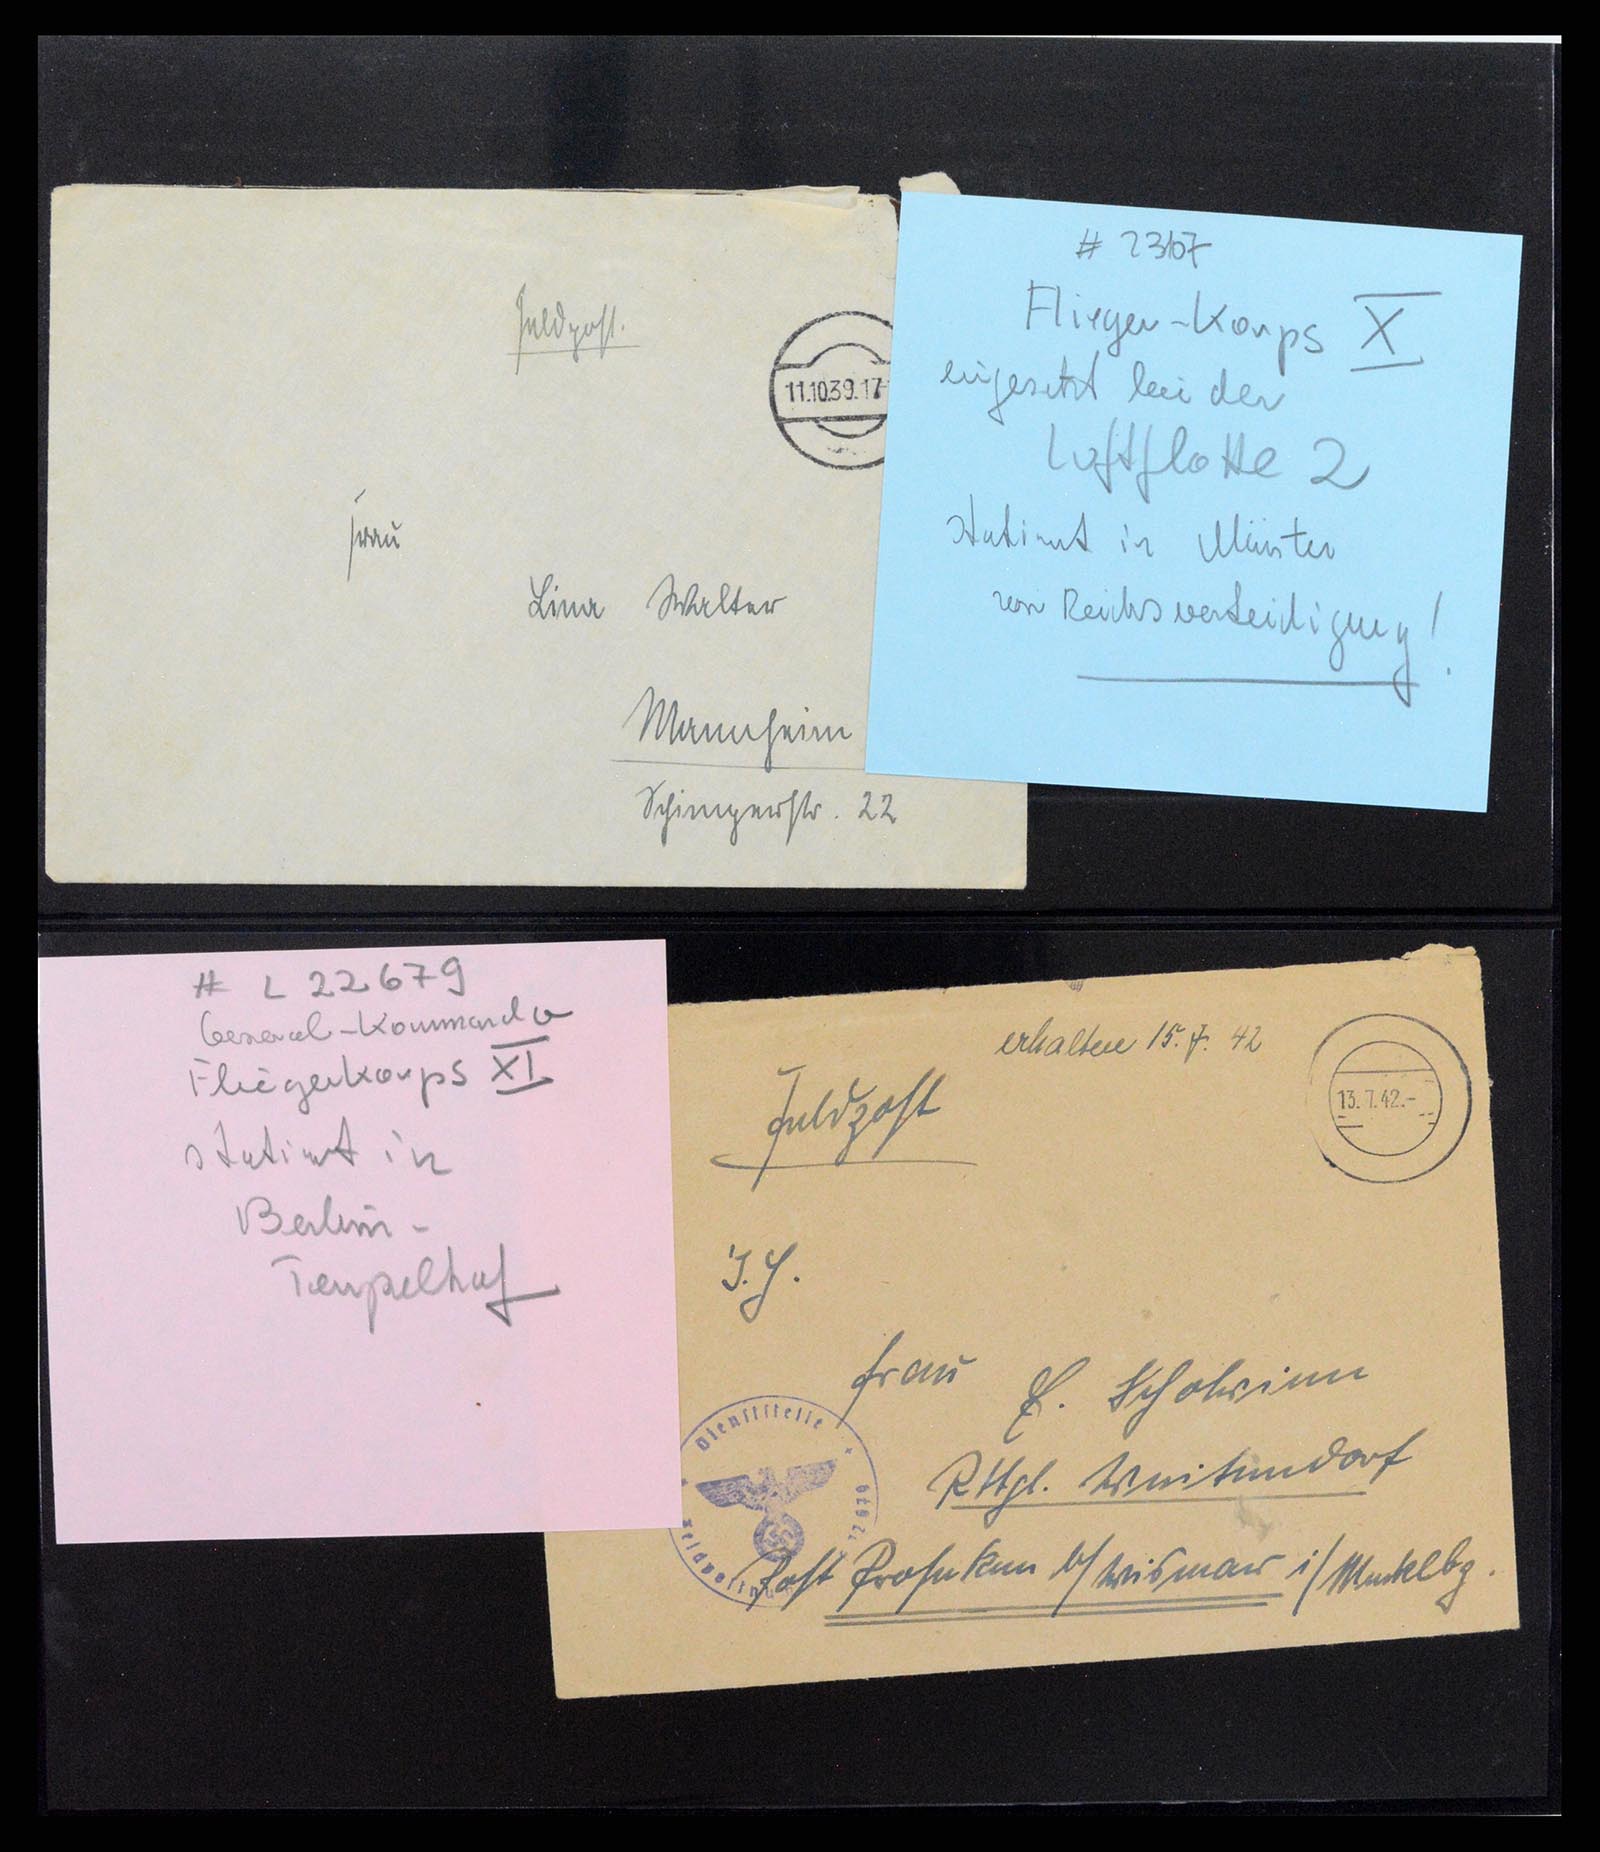 Feldpost.
11.10.39.17
Frau
Lina Walter
Mannheim
Schimperstr. 22
# 23107
Flieger-Korps X
eingesetzt bei der
Luftflotte 2
stationiert in Münster
zur Reichsverteidigung!
# L 22679
General-Kommando
Fliegerkorps XI
stationiert in
Berlin-
Tempelhof
erhalten 15.7.42
13.7.42.-
Feldpost
J.H.
Frau E. Scholwinn
Rttgl. Weitendorf
Post Proseken b/Wismar i/Mecklbg.
Dienststelle